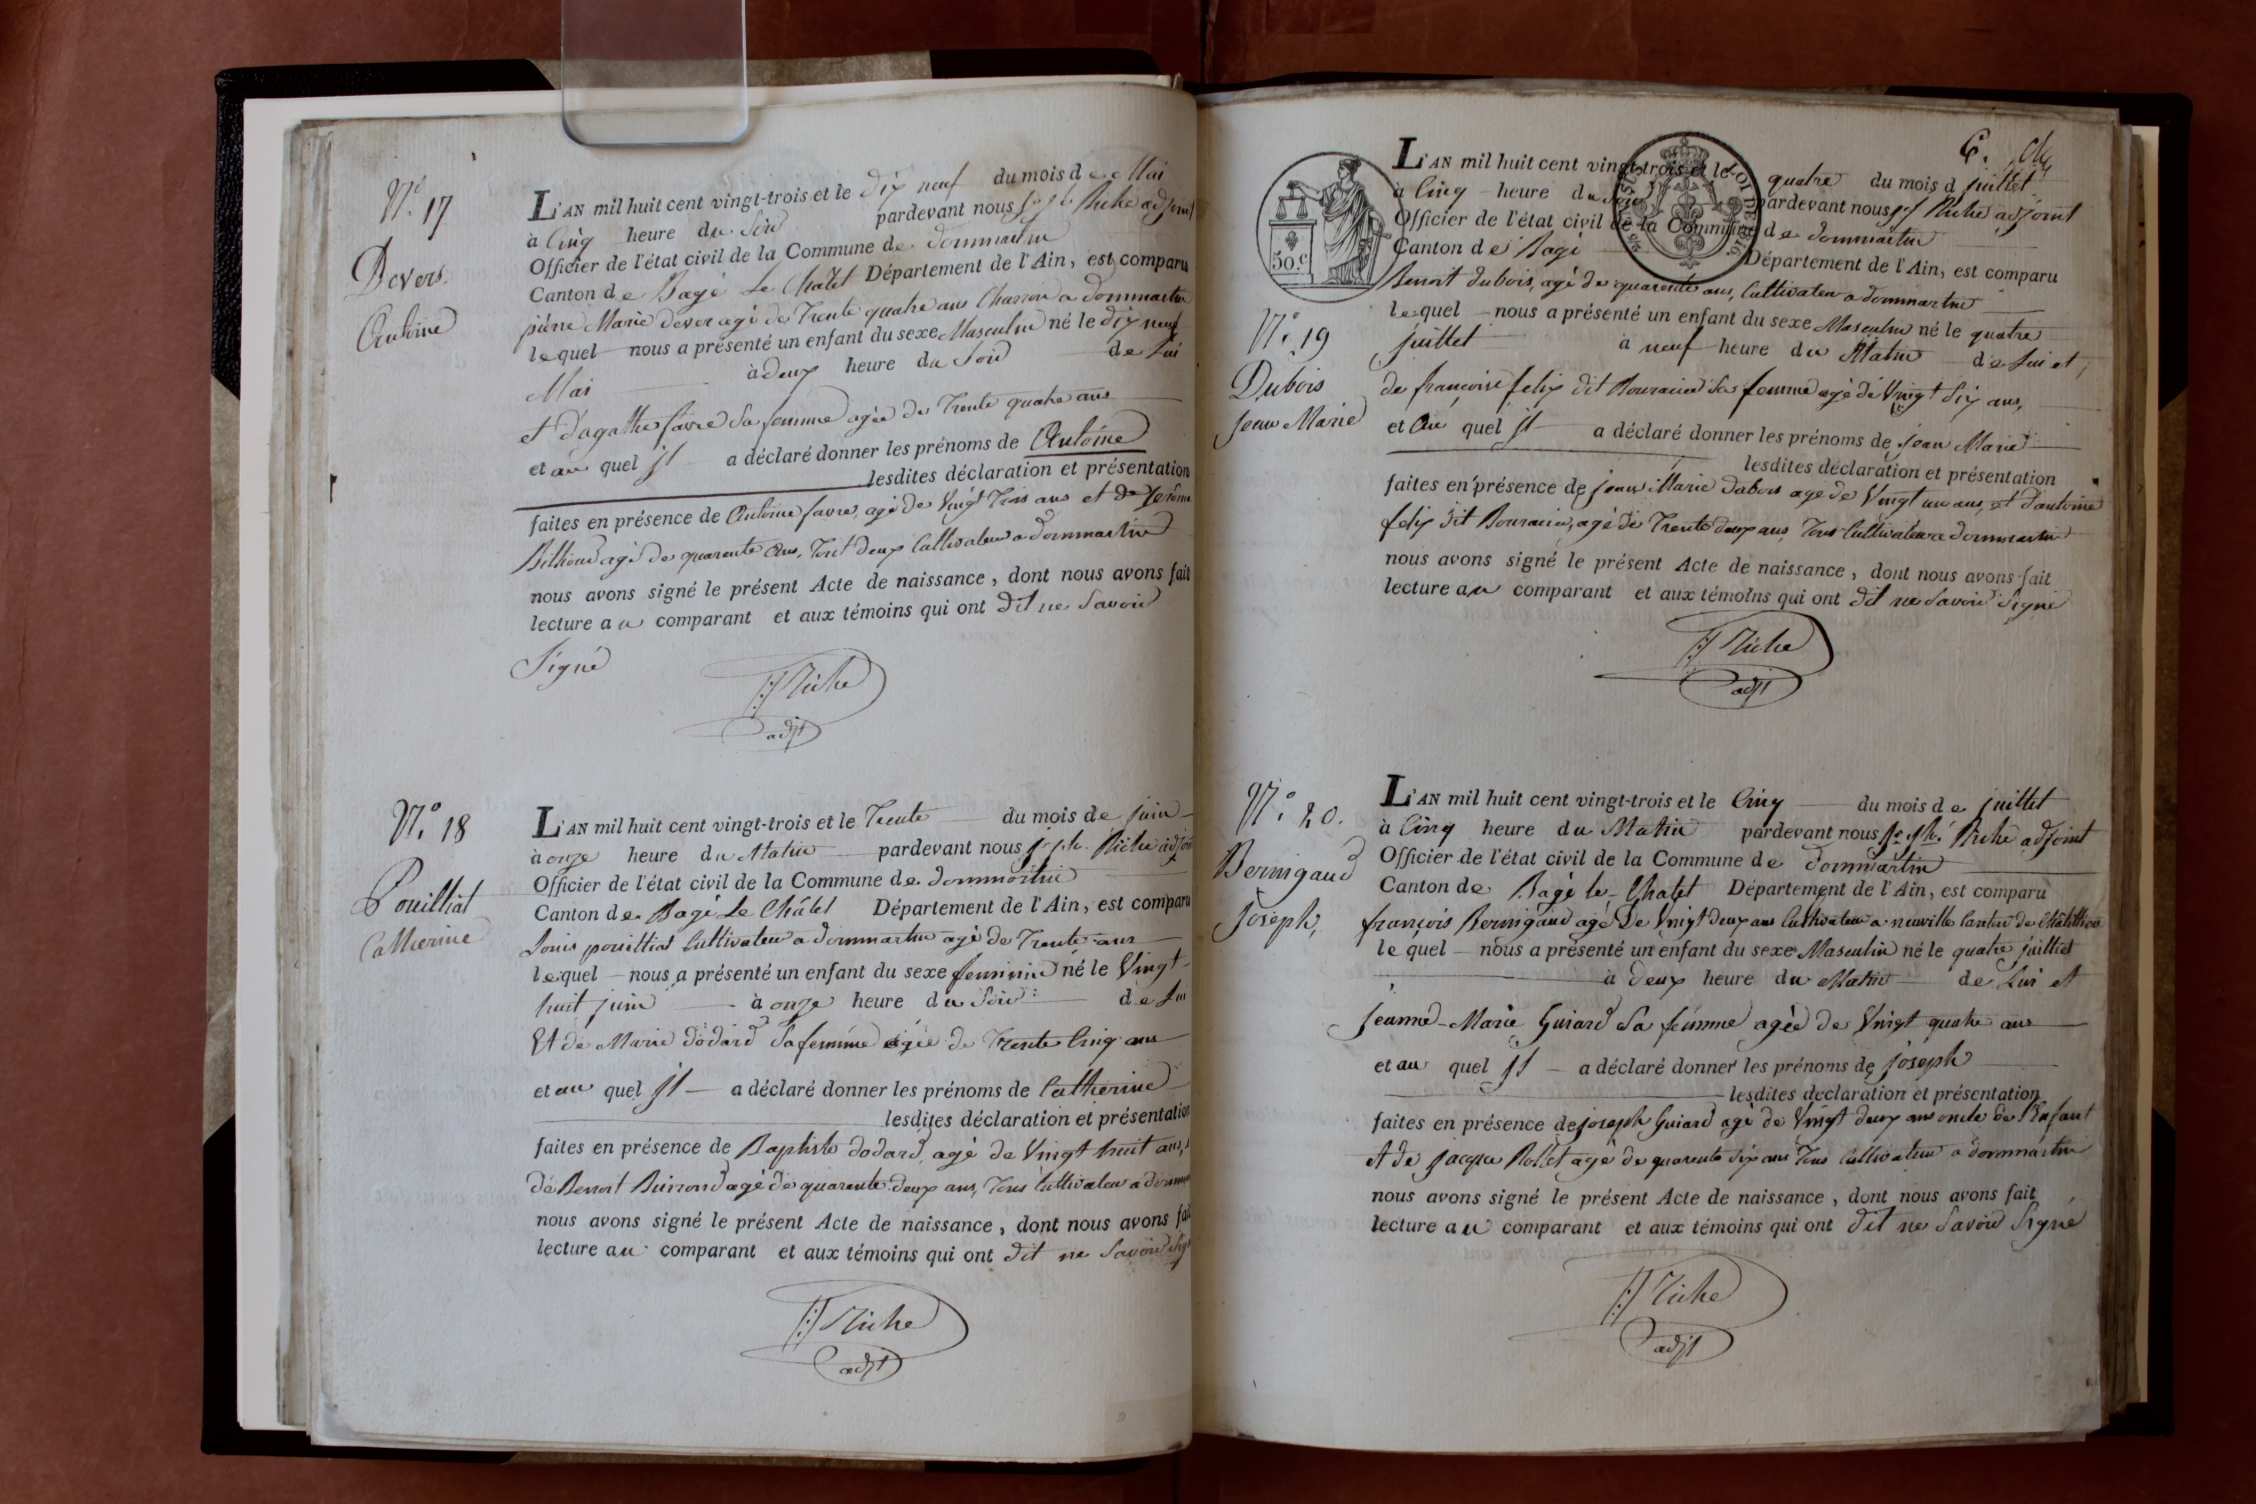 N.° 17
Devers
Antoine
L'AN mil huit cent vingt-trois et le dix neuf du mois de Mai
à Cinq heure du Soir pardevant nous Joseph Riche adjoint
Officier de l'état civil de la Commune de dommartin
Canton de Bagé Le Chatel Département de l'Ain, est comparu
pierre Marie dever agé de Trente quatre ans Charron a dommartin
lequel nous a présenté un enfant du sexe Masculin né le dix neuf
Mai à deux heure du Soir de Lui
et d'agathe favre Sa femme agée de Trente quatre ans
et au quel Il a déclaré donner les prénoms de Antoine
lesdites déclaration et présentation
faites en présence de Antoine favre, agé de Vingt Trois ans et de Jerôme
agé de quarente ans, Tout deux Cultivateur a dommartin
nous avons signé le présent Acte de naissance, dont nous avons fait
lecture au comparant et aux témoins qui ont dit ne Savoir
Signé
Riche
adjt
N.° 18
Pouilliat
Catherine
L'AN mil huit cent vingt-trois et le Trente du mois de juin
à onze heure du Matin pardevant nous joseph Riche adjoi
Officier de l'état civil de la Commune de dommartin
Canton de Bagé Le Châtel Département de l'Ain, est comparu
Louis pouilliat Cultivateur a dommartin agé de Trente ans
lequel nous a présenté un enfant du sexe feminin né le Vingt
huit juin à onze heure du Soir de Lui
Et de Marie dodard Sa femme agée de Trente Cinq ans
et au quel Il a déclaré donner les prénoms de Catherine
lesdites déclaration et présentation
faites en présence de Baptiste dodard, agé de Vingt huit ans,
de Benoit Buirron agé de quarente deux ans, Tous Cultivateur a domm
nous avons signé le présent Acte de naissance, dont nous avons fai
lecture au comparant et aux témoins qui ont dit ne Savoir Sign
Riche
adjt
6.
50.c
LOI DE 1816
L'AN mil huit cent vingt-trois et le quatre du mois d juillet
à Cinq heure du Soir pardevant nous Jsf Riche adjoint
Officier de l'état civil de la Commune de dommartin
Canton de Bagé Département de l'Ain, est comparu
N.° 19
Dubois
Jean Marie
Benoit dubois, agé de quarente ans, Cultivateur a dommartin
lequel nous a présenté un enfant du sexe Masculin né le quatre
juillet à neuf heure du Matin de Lui et
de françoise felix dit Bouracin Sa femme agé de Vingt Six ans,
et Au quel Il a déclaré donner les prénoms de jean Marie
lesdites déclaration et présentation
faites en présence de jean Marie dubois agé de Vingt un ans, et d'antoine
felix dit Bouracin, agé de Trente deux ans, Tous Cultivateur a dommartin
nous avons signé le présent Acte de naissance, dont nous avons fait
lecture au comparant et aux témoins qui ont dit ne Savoir Signé
Riche
adjt
N.° 20.
Bernigaud
Joseph,
L'AN mil huit cent vingt-trois et le Cinq du mois de juillet
à Cinq heure du Matin pardevant nous Jo.ph. Riche adjoint
Officier de l'état civil de la Commune de dommartin
Canton de Bagé le Chatel Département de l'Ain, est comparu
françois Bernigaud agé de Vingt deux ans Cultivateur a neuville Canton de Châtillion
lequel nous a présenté un enfant du sexe Masculin né le quatre juilliet
à deux heure du Matin de Lui et
jeanne-Marie Guiard Sa femme agée de Vingt quatre ans
et au quel Il a déclaré donner les prénoms de joseph
lesdites declaration et présentation
faites en présence de joseph Guiard agé de Vingt deux ans oncle de l'Enfant
et de jacque Rollet agé de quarente Six ans Tous Cultivateur a dommartin
nous avons signé le présent Acte de naissance, dont nous avons fait
lecture au comparant et aux témoins qui ont dit ne Savoir Signé
Riche
adjt